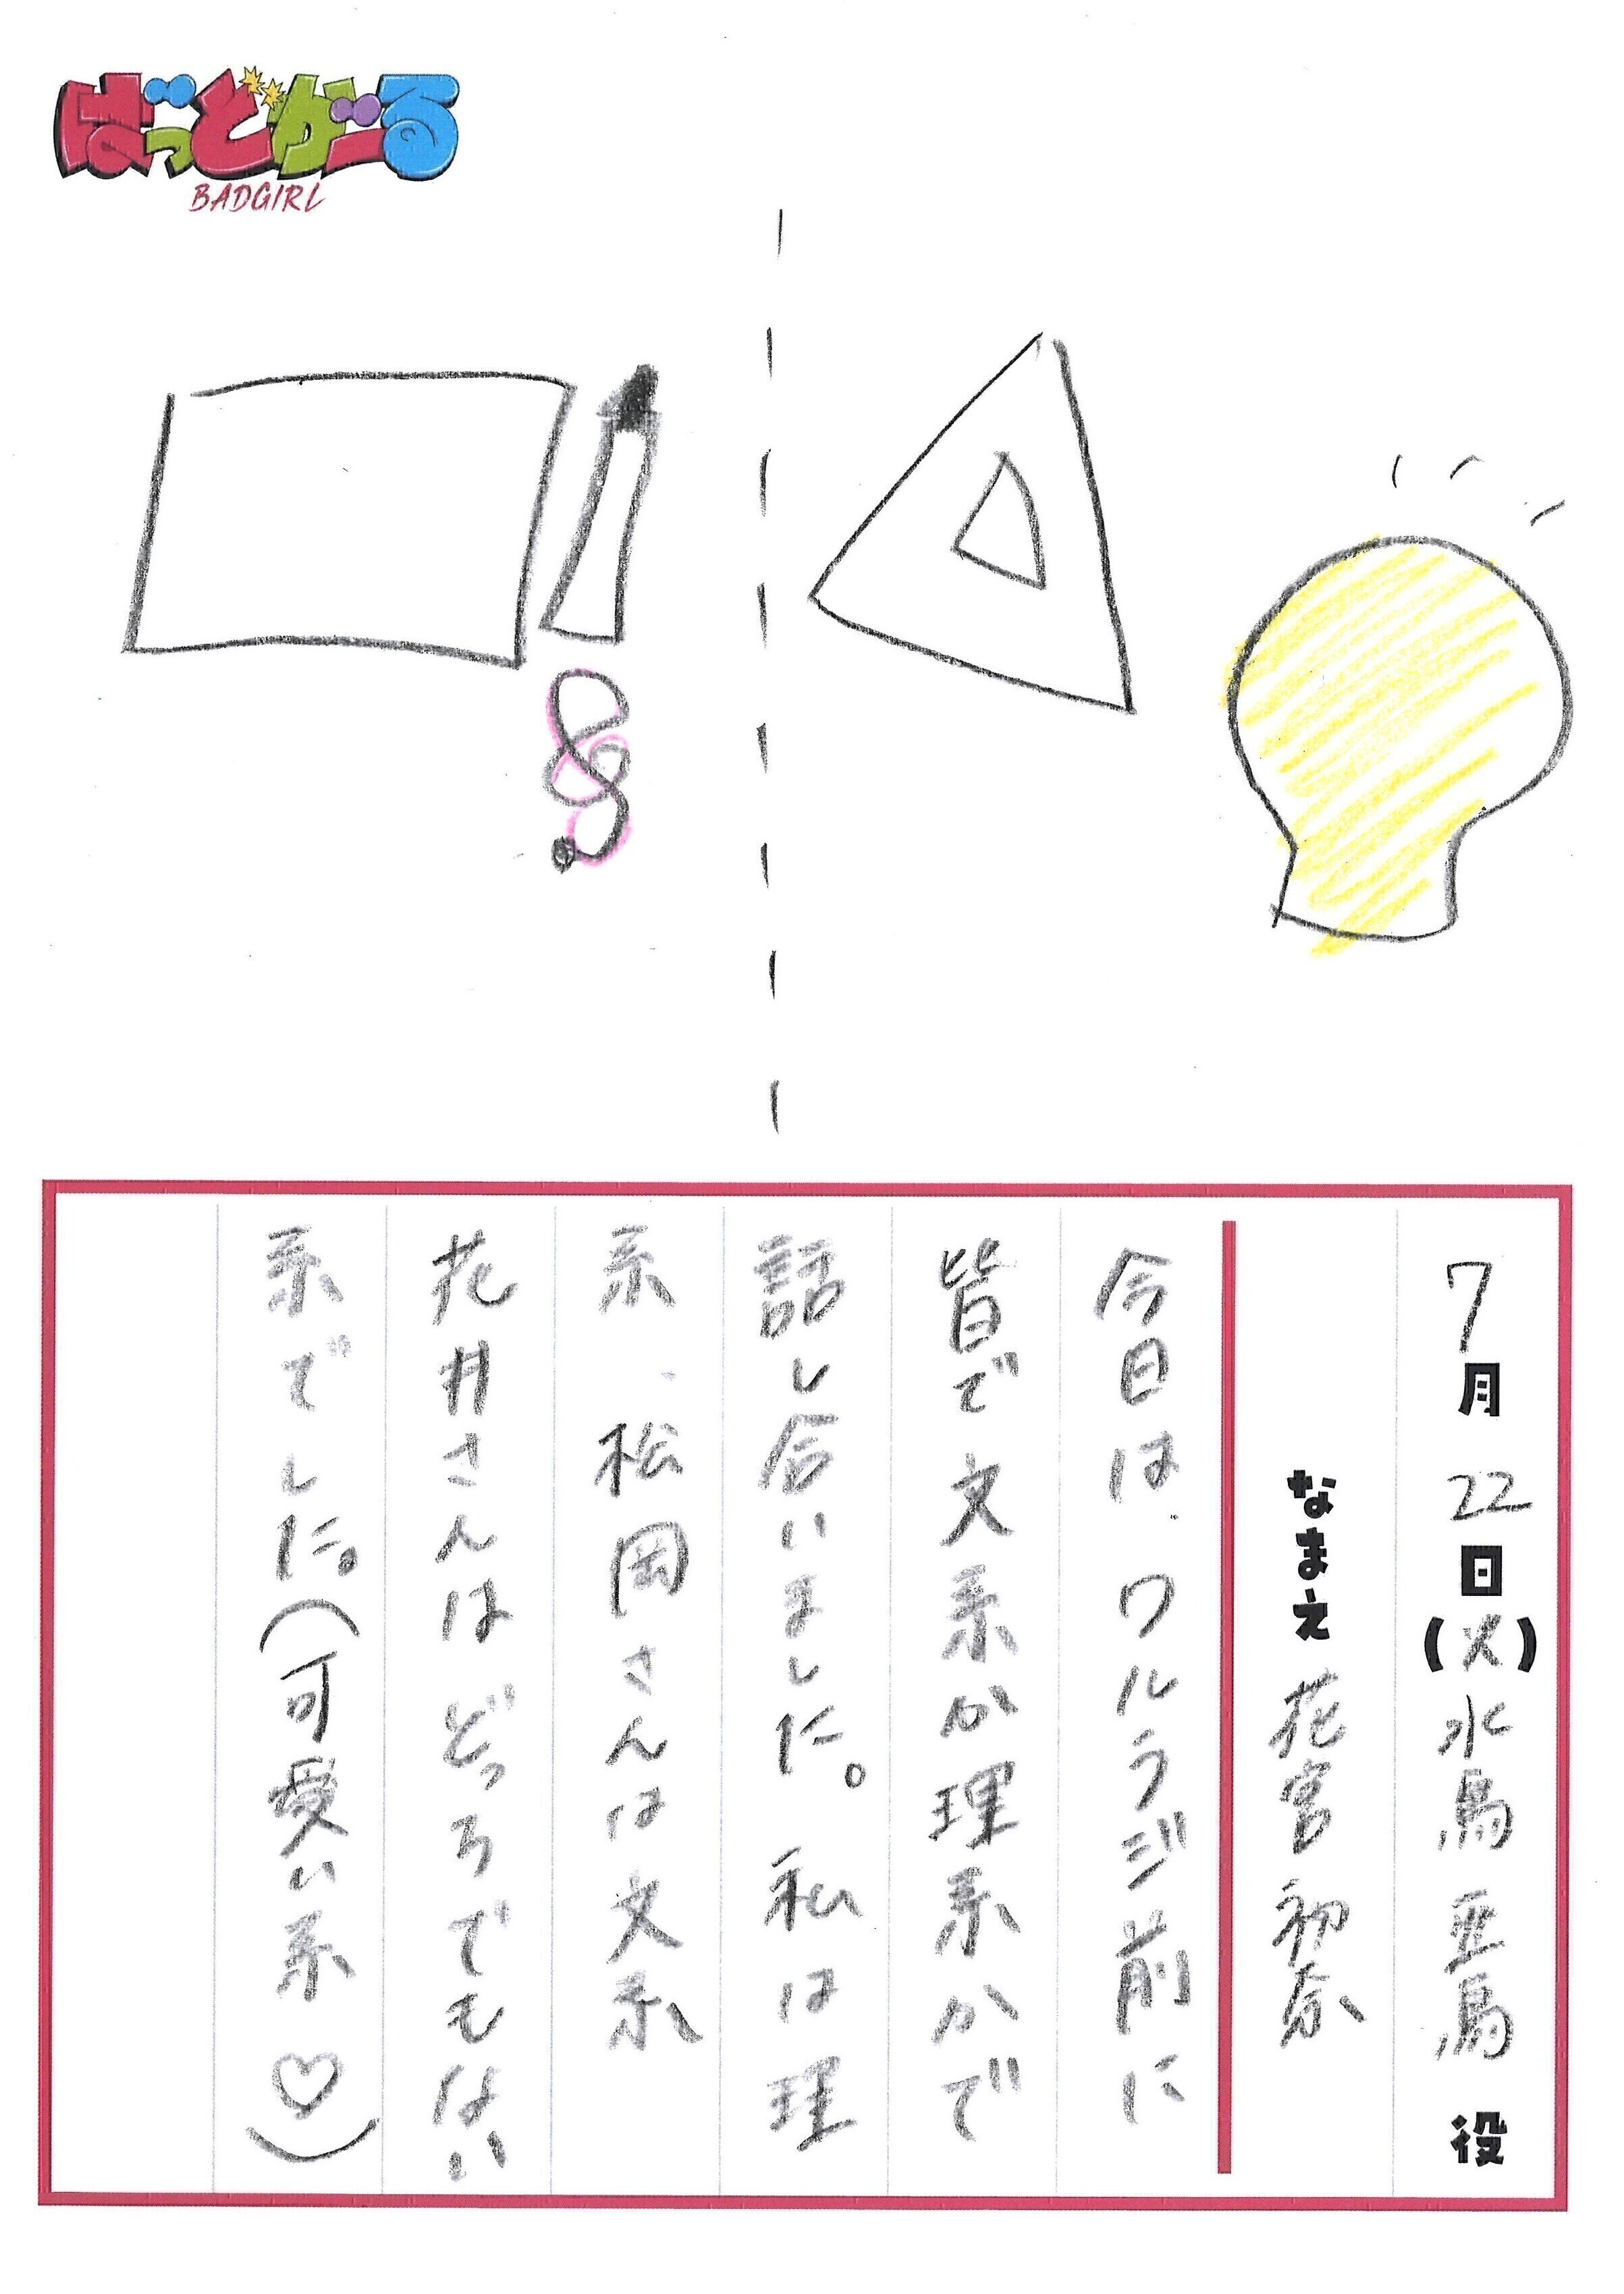 ばっどがーる
BADGIRL
7月22日(火)水鳥 亜鳥 役
なまえ 花宮初奈
今日は、ワルラジ前に
皆で文系か理系かで
話し合いました。私は理
系、松岡さんは文系
花井さんはどっちでもない
系でした。(可愛い系♡)